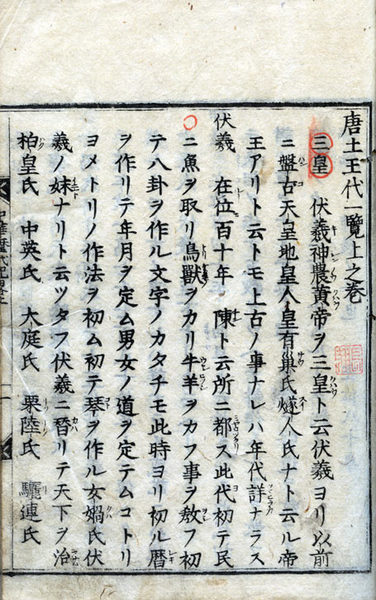 唐土王代一覧上之巻
三皇 伏羲神農黄帝ヲ三皇ト云伏羲ヨリ以前
ニ盤古天皇地皇人皇有巣氏燧人氏ナト云ル帝
王アリト云トモ上古ノ事ナレハ年代詳ナラス
伏羲 在位百十年 陳ト云所ニ都ス此代初テ民
ニ魚ヲ取リ鳥獸ヲカリ牛羊ヲカフ事ヲ教フ初
テ八卦ヲ作ル文字ノカタチモ此時ヨリ初ル暦
ヲ作リテ年月ヲ定ム男女ノ道ヲ定テムコトリ
ヨメトリノ作法ヲ初ム初テ琴ヲ作ル女媧氏伏
羲ノ妹ナリト云ツタフ伏羲ニ替リテ天下ヲ治
柏皇氏 中英氏 大庭氏 栗陸氏 驪連氏